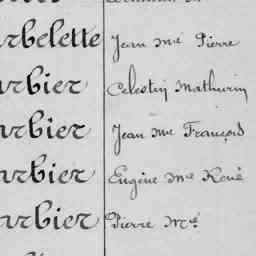 arbelette Jean Mie Pierre
arbier Celestin Mathurin
arbier Jean Mie François
arbier Eugène Mie René
arbier Pierre Mie